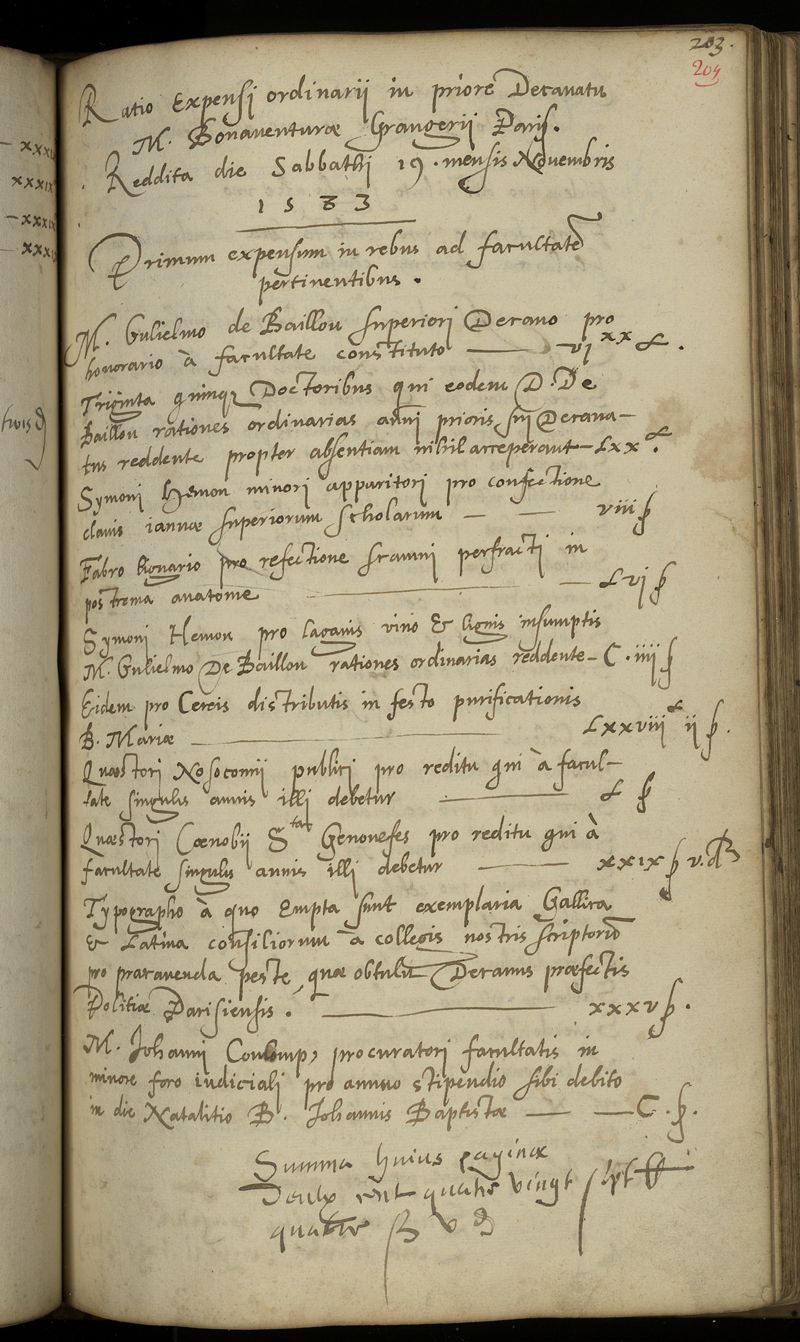 203.
204
Ratio Expensi ordinarii in priore Decanatu
M. Bonaventuræ Grangerii Paris.
Reddita die Sabbathi 19. mensis Novembris
1583
Primum expensum in rebus ad facultatē
pertinentibus.
M. Gulielmo de Baillou superiori Decano pro
honorario à facultate constituto — vi xx ℔.
Triginta quinq; Doctoribus qui eodem D. De
Baillou rationes ordinarias anni prioris sui Decana-
tus reddente propter absentiam nihil acceperant — Lxx ℔.
Symoni Hemon minori apparitori pro confectione
clavis ianuæ superiorum scholarum — — viii ß
Fabro lignario pro refectione scamni perfracti in
postrema anatome — Lvi ß
Symoni Hemon pro laganis vino & lignis insumptis
M. Gulielmo De Baillou rationes ordinarias reddente — C.iiii ß
Eidem pro Cereis distributis in festo purificationis
B. Mariæ — Lxxviii ℔ ii ß.
Quæstori Nosocomii publici pro reditu qui à facul-
tate singulis annis illi debetur — L ß
Quæstori Cœnobii S tæ Genovefes pro reditu qui à
facultate singulis annis illi debetur — xxix ß v. d
Typographo à quo Empta sunt exemplaria Gallica
& Latina consiliorum a collegis nostris scriptorū
pro præcavenda peste, quæ obtulit Decanus præfectis
Politiæ Parisiensis. — xxxv ß.
M. Iohanni procuratori facultatis in
minore foro iudiciali pro annuo stipendio sibi debito
in die Natalitio B. Iohannis Baptistæ — — C. ß.
Summa huius paginæ
Deulx cent quatre vingt sept ℔
quatre ß v d